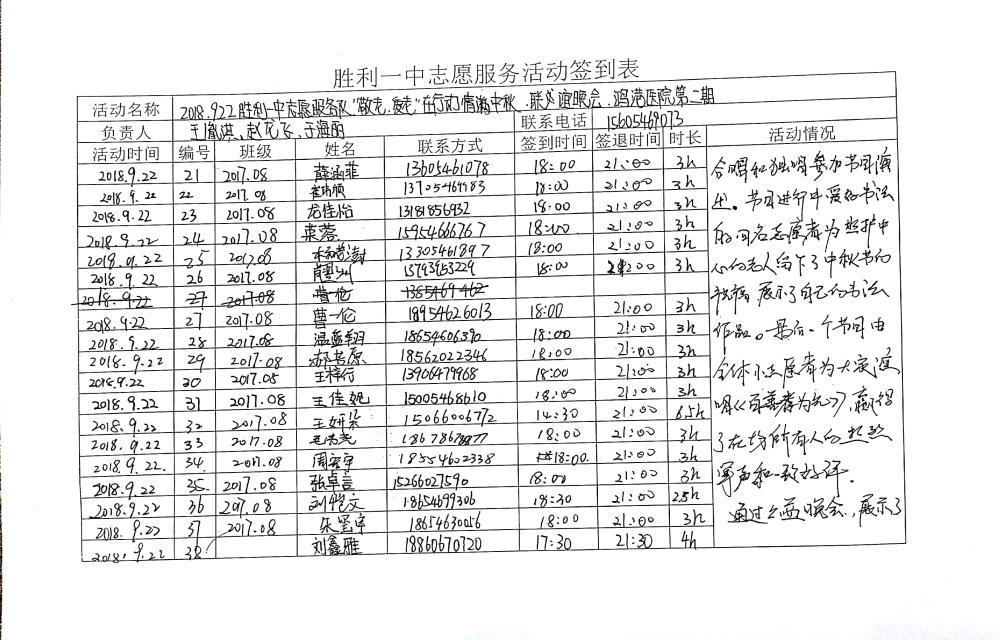 胜利一中志愿服务活动签到表
活动名称 2018.9.22胜利一中志愿服务队"敬老、爱老"在行动 情满中秋、联欢晚会、鸿港医院第二期
负责人 王胤淇、赵龙飞、于海丽 联系电话 15605469073
活动时间 编号 班级 姓名 联系方式 签到时间 签退时间 时长 活动情况
2018.9.22 21 2017.08 薛涵菲 13605461078 18:00 21:00 3h
2018.9.22 22 2017.08 13705469983 18:00 21:00 3h
2018.9.22 23 2017.08 尤佳怡 13181856932 18:00 21:00 3h
2018.9.22 24 2017.08 栾蓉 15954666767 18:00 21:00 3h
2018.01.22 25 2017.08 13305461897 18:00 21:00 3h
2018.9.22 26 2017.08 15743953229 18:00 21:00 3h
2018.9.22 27 2017.08
2018.9.22 27 2017.08 曹一伦 18954626013 18:00 21:00 3h
2018.9.22 28 2017.08 温蓝翔 18654606390 18:00 21:00 3h
2018.9.22 29 2017.08 郝书原 18562022346 18:00 21:00 3h
2018.9.22 30 2017.08 王梓行 13906479968 18:00 21:00 3h
2018.9.22 31 2017.08 王佳妮 15005468610 18:00 21:00 3h
2018.9.22 32 2017.08 王妍朵 15066006772 14:30 21:00 6.5h
2018.9.22 33 2017.08 18678678977 18:00 21:00 3h
2018.9.22. 34 2017.08 周奕宇 18554602338 18:00. 21:00 3h
2018.9.22 35 2017.08 张卓言 15266027590 18:00 21:00 3h
2018.9.22 36 2017.08 刘悦文 18654699306 18:30 21:00 2.5h
2018.9.22 37 2017.08 朱玺宇 18654630056 18:00 21:00 3h
2018.9.22 38 刘鑫雅 18860670720 17:30 21:30 4h
合唱和独唱参加节目演
出。节目进行中爱好书法
的四名志愿者为照护中
心的老人留下了中秋节的
祝福展示了自己的书法
作品。最后一个节目由
全体小志愿者为大家演
唱《百善孝为先》,赢得
了在场所有人的热烈
掌声和一致好评.
通过 晚会,展示了